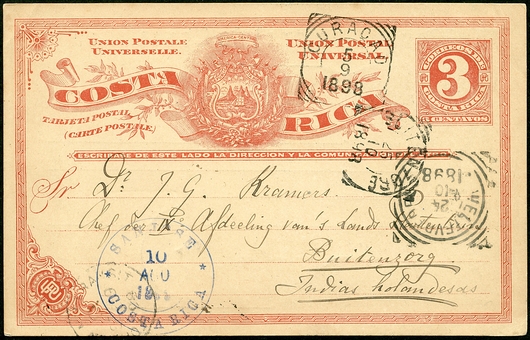 UNION POSTALE
UNIVERSELLE.
UNION POSTAL
UNIVERSAL
COSTA
RICA
TARJETA POSTAL
(CARTE POSTALE)
CORREOS DE
COSTA RICA
3
CENTAVOS
ESCRIBASE DE ESTE LADO LA DIRECCION Y LA
CURACAO
5
9
1898
1898
24
10
1898
Sr Dr. J. G. Kramers
Chef der IX Afdeeling van 's Lands
Buitenzorg
Indias holandesas
SAN JOSE
10
COSTA RICA
UPU